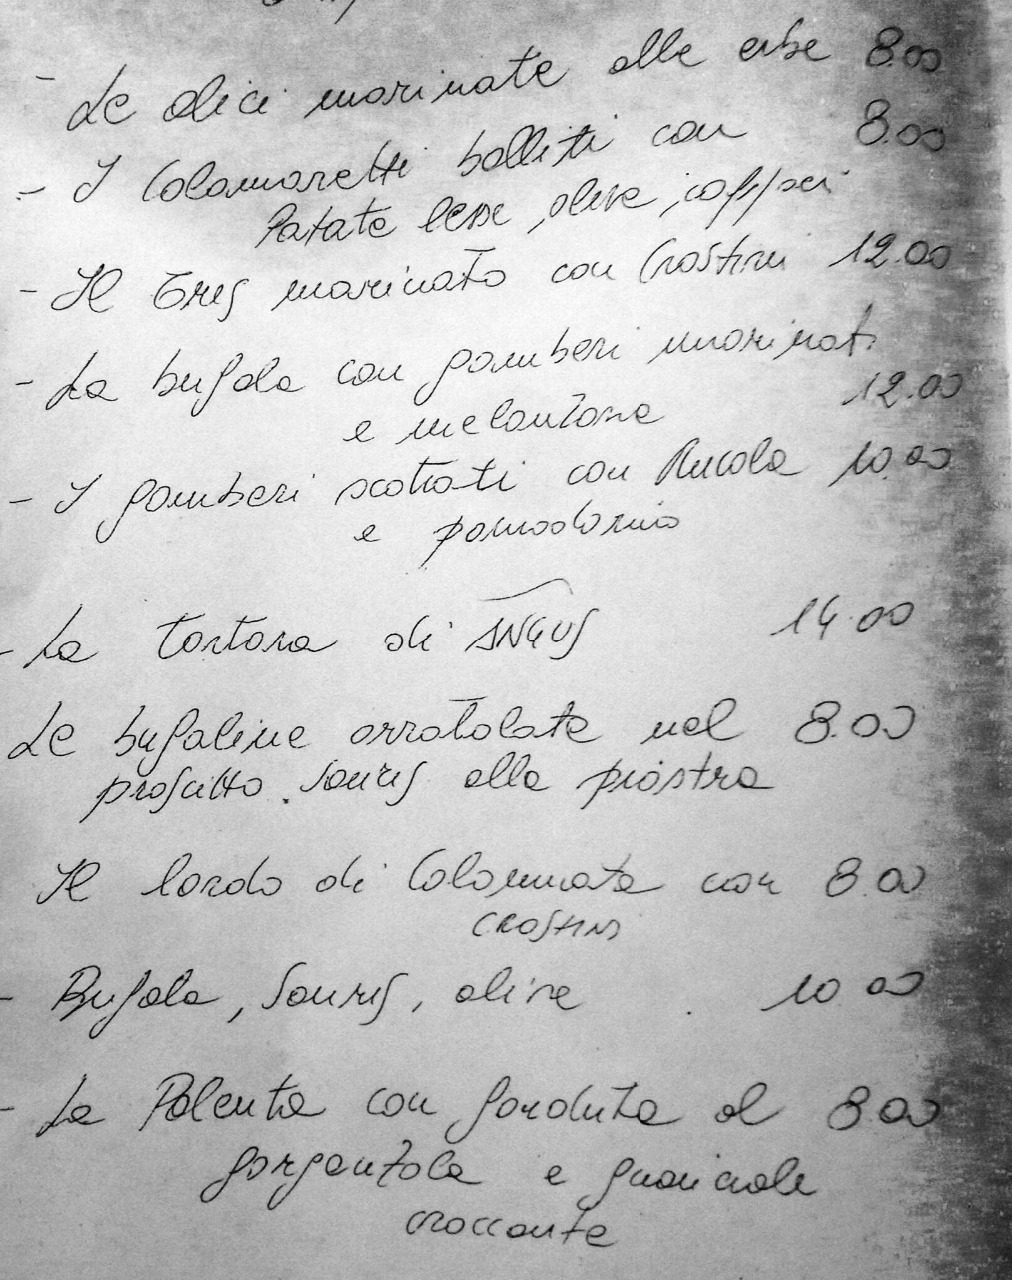 - Le alici marinate alle erbe 8.00
- I Calamaretti bolliti con 8.00
Patate lesse, olive, capperi
- Il Tris marinato con Crostini 12.00
- La bufala con gamberi marinati
e melanzane 12.00
- I gamberi scottati con Rucola 10.00
e pomodorino
- La tartara di ANGUS 14.00
Le bufaline arrotolate nel 8.00
prosciutto Sauris alla piastra
Il lardo di Colonnata con 8.00
CROSTINI
- Bufala, Sauris, olive 10.00
- La Polenta con fonduta al 8.00
gorgonzola e guanciale
croccante